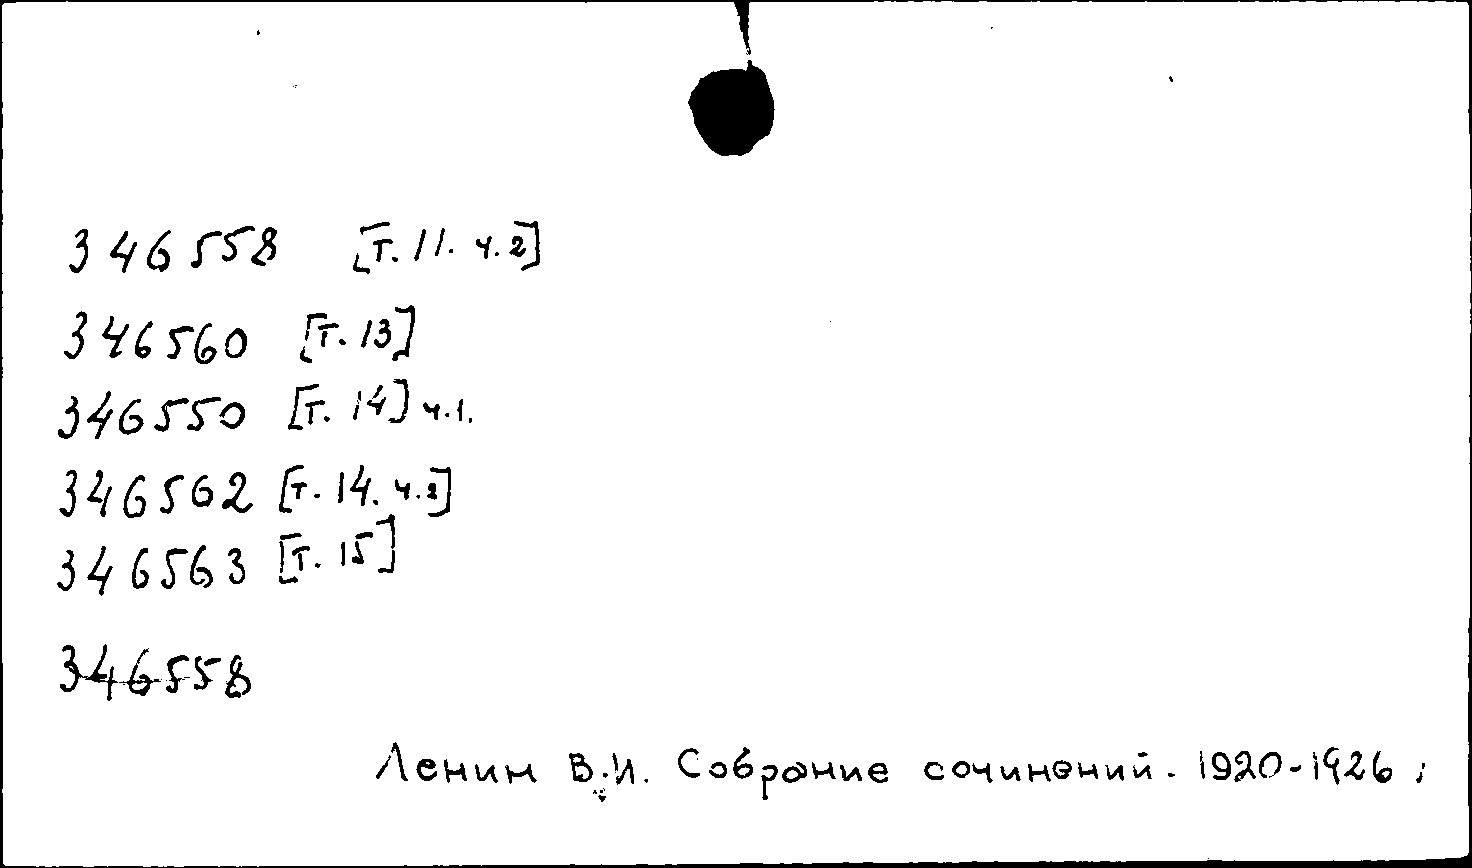 346558 [т. 11. ч. 2]
346560 [т. 13]
346550 [т. 14] ч. 1.
346562 [т. 14. ч. 2]
346563 [т. 15]
346558
Ленин В.И. Собрание сочинений. 1920-1926;